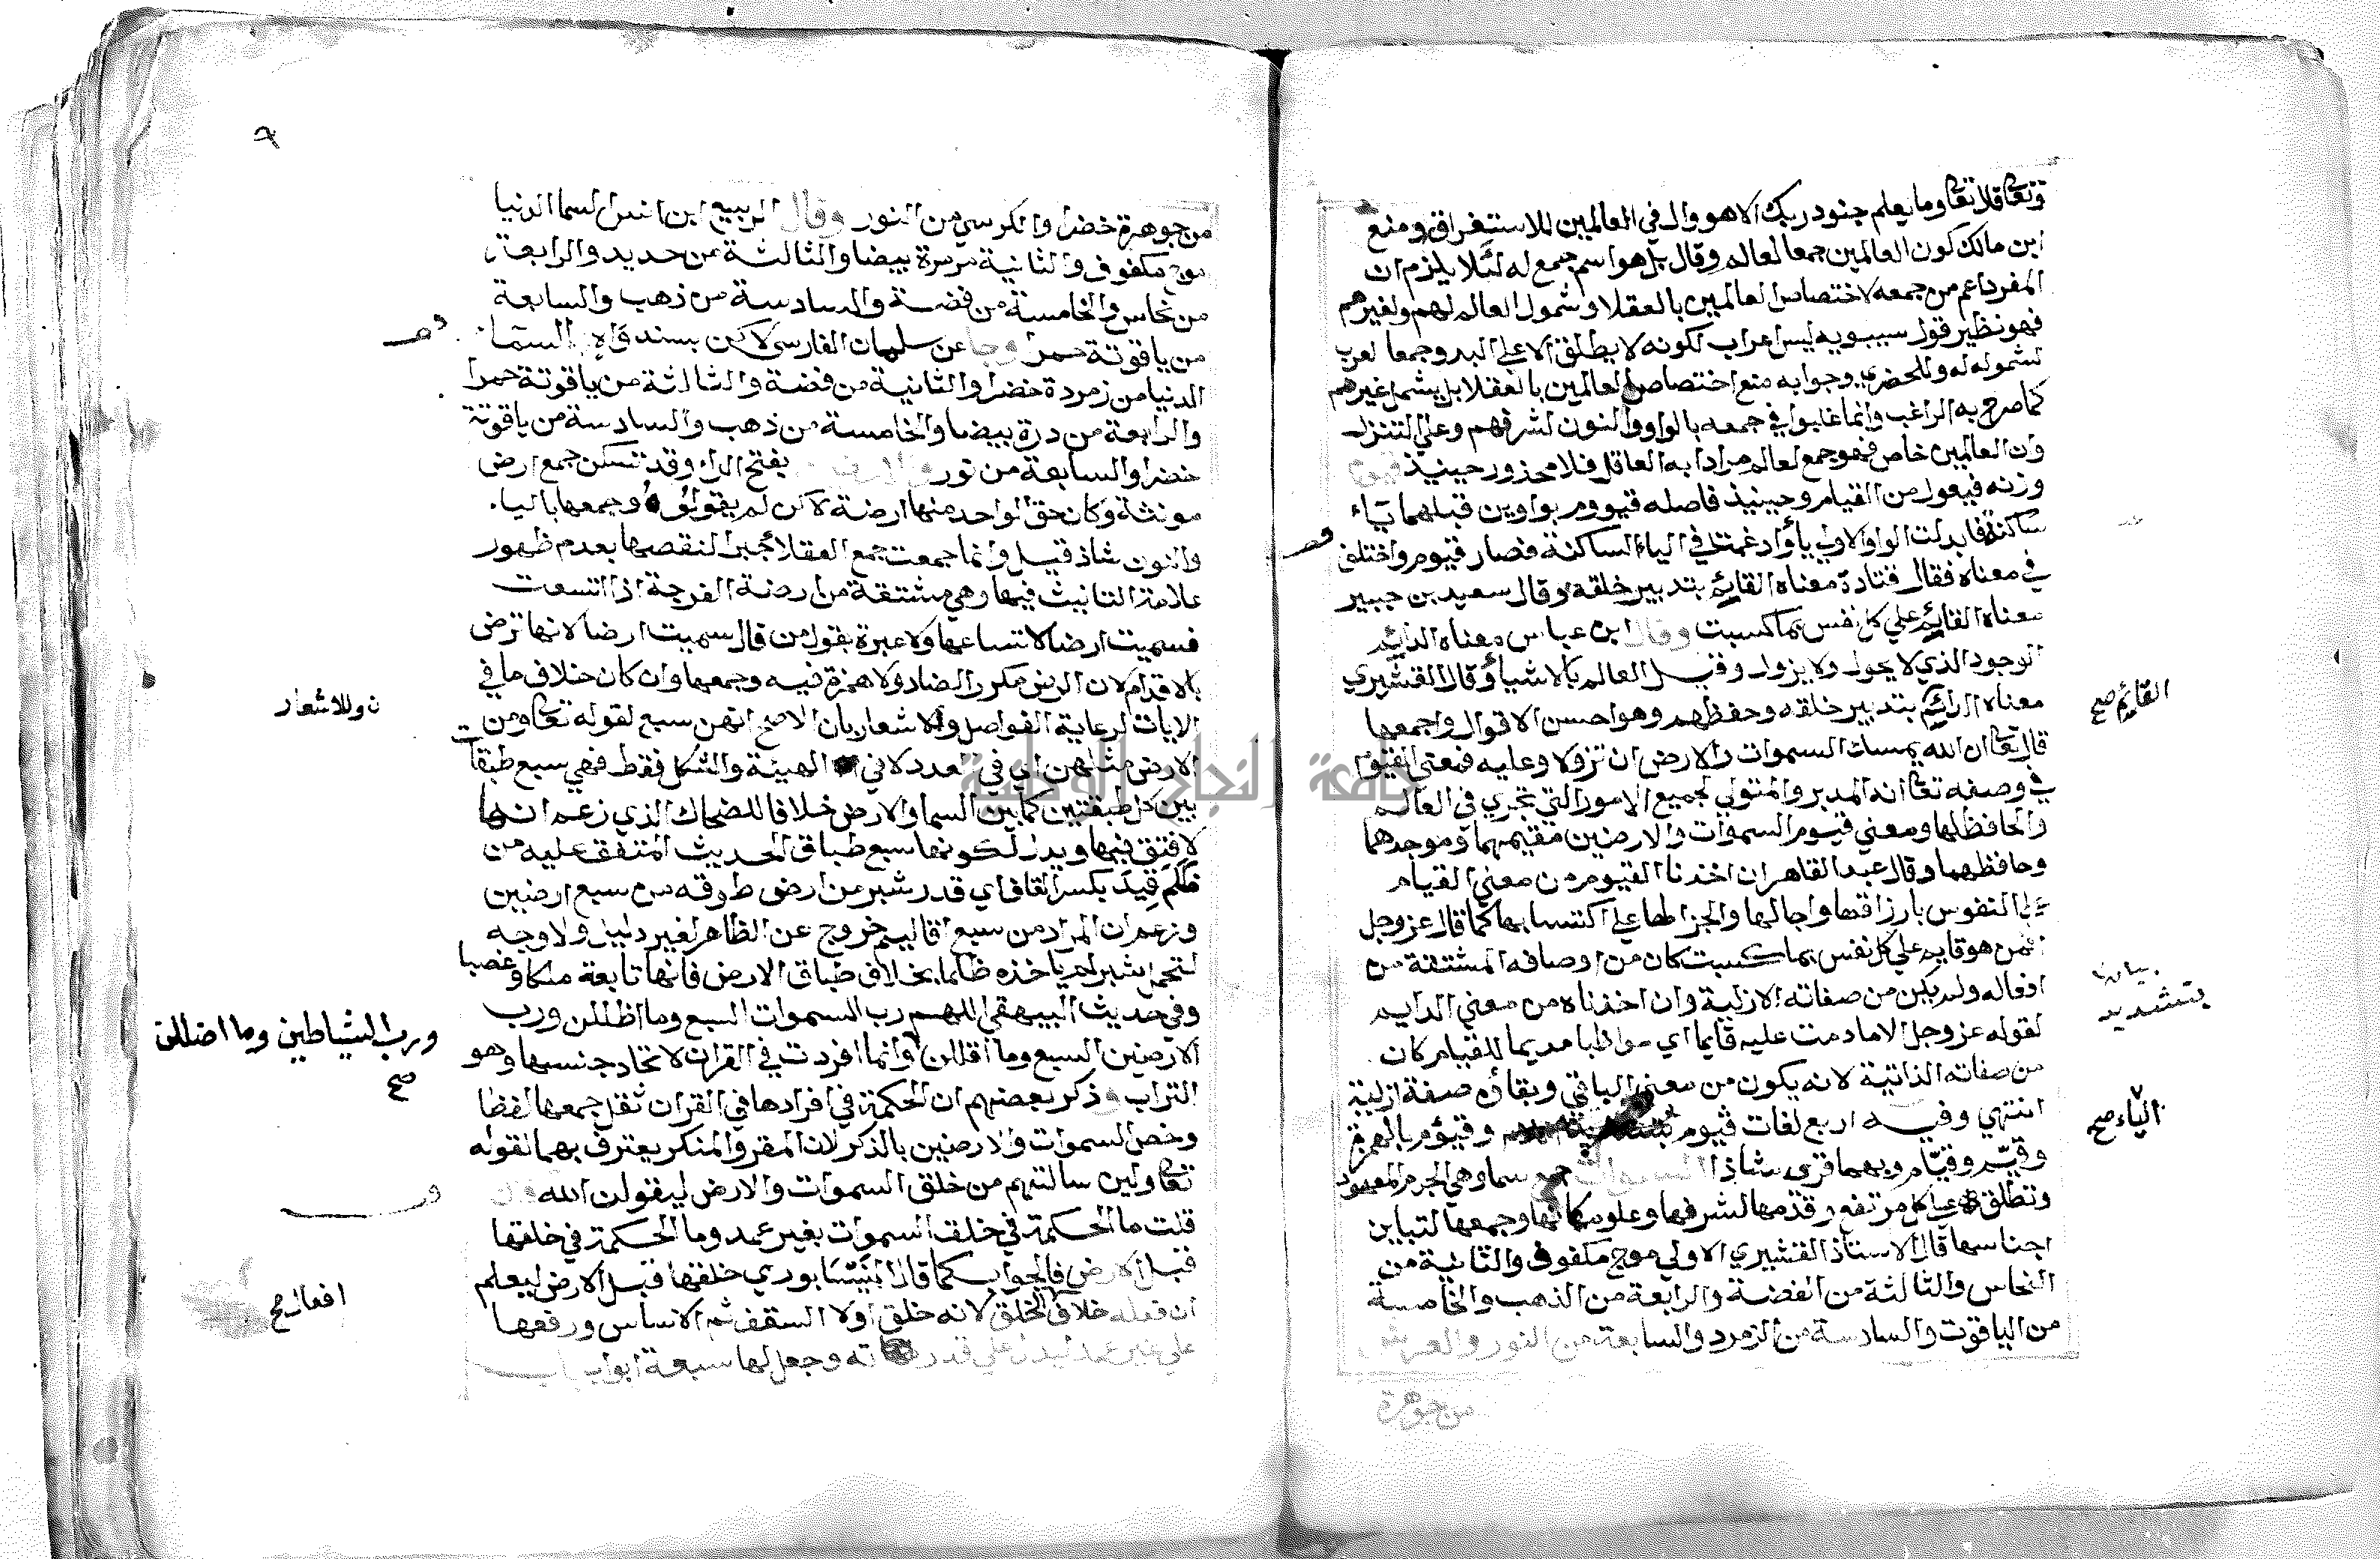 وتعالى فلا تعالى وما يعلم جنود ربك الا هو وال في العالمين للاستغراق ومنع
ابن مالك كون العالمين جمعا لعالم وقال بل هو اسم جمع له لئلا يلزم ان
المفرد اعم من جمعه لاختصاص العالمين بالعقلا وشمول العالم لهم ولغيرهم
فهو نظير قول سيبويه ليس اعراب لكونه لا يطلق الا على البدو جمعا لعرب
لشموله له وللحضري وجوابه منع اختصاص العالمين بالعقلا بل يشمل غيرهم
كما صرح به الراغب وانما غلبوا في جمعه بالواو والنون لشرفهم وعلى التنزل
وان العالمين خاص فهو جمع لعالم مرادا به العاقل فلا محذور حينيذ قيوم
وزنه فيعول من القيام وحينيذ فاصله قيووم بواوين قبلهما ياء
ساكنة فابدلت الواو الاولى يأ وادغمت في الياء الساكنة فصار قيوم واختلف
في معناه فقال قتادة معناه القائم بتدبير خلقه وقال سعيد بن جبير
معناه القائم على كل نفس بما كسبت وقال ابن عباس معناه الدائم
الوجود الذي لا يحول ولا يزول وقيل العالم بالاشيأ وقال القشيري
معناه الدائم بتدبير خلقه وحفظهم وهو احسن الاقوال واجمعها
القايم صح
قال تعالى ان الله يمسك السموات والارض ان تزولا وعليه فمعنى القيوم
في وصفه تعالى انه المدبر والمتولي لجميع الامور التي تجري في العالم
والحافظ لها ومعنى قيوم السموات والارضين مقيمهما وموجدهما
وحافظهما وقال عبد القاهر ان اخذنا القيوم من معنى القيام
على النفوس بارزاقها واجالها والجزا لها على اكتسابها كما قال عز وجل
افمن هو قايم على كل نفس بما كسبت كان من اوصافه المشتقة من
افعاله ولم يكن من صفاته الازلية وان اخذناه من معنى الدايم
لقوله عز وجل الا ما دمت عليه قايما اي مواظبا مديما للقيام كان
بتشديد
من صفاته الذاتية لانه يكون من معنى الباقي وبقاؤه صفة ازلية
انتهي وفيه اربع لغات قيوم وقيؤم بالهمزة
الياء صح
وقيّم وقيّام وبهما قرى شاذا السموات جمع سما وهي الجرم المعهود
وتطلق على كل مرتفع وقدمها لشرفها وعلو مكانها وجمعها لتباين
اجناسها قال الاستاذ القشيري الاولى موج مكفوف والثانية من
النحاس والثالثة من الفضة والرابعة من الذهب والخامسة
من الياقوت والسادسة من الزمرد والسابعة من النور والعرش
من جوهرة
من جوهرة خضرا والكرسي من النور وقال الربيع ابن انس السما الدنيا
موج مكفوف والثانية مرمرة بيضا والثالثة من حديد والرابعة
من نحاس والخامسة من فضة والسادسة من ذهب والسابعة
من ياقوتة حمرا وجا عن سلمان الفارسي لاكن بسند السما
الدنيا من زمردة خضرا والثانية من فضة والثالثة من ياقوتة حمرا
والرابعة من درة بيضا والخامسة من ذهب والسادسة من ياقوتة
خضرا والسابعة من نور والارضين بفتح الراء وقد تسكن جمع ارض
مونثة وكان حق الواحد منها ارضة لاكن لم يقولوه وجمعها بالياء
والنون شاذ قيل وانما جمعت جمع العقلا جبرا لنقصها بعدم ظهور
علامة التانيث فيها وهي مشتقة من ارضة الفرجة اذا اتسعت
فسميت ارضا لاتساعها ولا عبرة بقول من قال سميت ارضا لانها ترض
بالاقدام لان الرض مكرر الضاد ولا همزة فيه وجمعها وان كان خلاف ما في
وللاشعار
الايات لرعاية الفواصل والاشعار بان الاصح انهن سبع لقوله تعالى ومن
الارض مثلهن اي في العدد لا في الهيئة والشكل فقط فهي سبع طبقات
بين كل طبقتين كما بين السما والارض خلافا للضحاك الذي زعم انها
لا فتق فيها ويدل لكونها سبع طباق الحديث المتفق عليه من
ظلم قيد بكسر القاف اي قدر شبر من ارض طوقه من سبع ارضين
وزعم ان المراد من سبع اقاليم خروج عن الظاهر لغير دليل ولا وجه
لتحمل شبر لم ياخذه ظالما بخلاف طباق الارض فانها تابعة ملكا وغصبا
وفي حديث البيهقي اللهم رب السموات السبع وما اظللن ورب
ورب الشياطين وما اضللن
صح
الارضين السبع وما اقللن وانما افردت في القران لاتحاد جنسها وهو
التراب وذكر بعضهم ان الحكمة في افرادها في القران ثقل جمعها لفظا
وخص السموات والارضين بالذكر لان المقر والمنكر يعترف بهما لقوله
تعالى ولين سالتهم من خلق السموات والارض ليقولن الله فان
قلت ما الحكمة في خلق السموات بغير عمد وما الحكمة في خلقها
قبل الارض فالجواب كما قال النيسابوري خلقها قبل الارض ليعلم
افعال صح
ان فعله خلاف الخلق لانه خلق اولا السقف ثم الاساس ورفعها
على غير عمد ليدل على قدرته وجعل لها سبعة ابواب